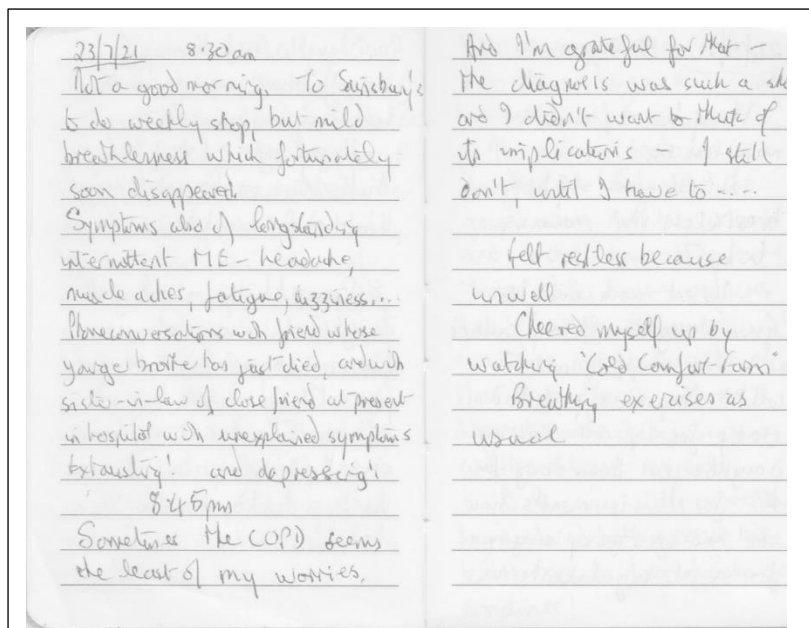 23/7/21 8.30am
Not a good morning. To Sainsbury's
to do weekly shop, but mild
breathlessness which fortunately
soon disappeared.
Symptoms also of longstanding
intermittent ME – headache,
muscle aches, fatigue, dizziness, ...
Phone conversations with friend whose
younger brother has just died, and with
sister-in-law of close friend at present
in hospital with unexplained symptoms
Exhausting! and depressing!
8.45pm
Sometimes the COPD seems
the least of my worries.
And I'm grateful for that –
the diagnosis was such a sho
and I didn't want to think of
its implications – I still
don't, until I have to .....
Felt restless because
unwell
Cheered myself up by
watching 'Cold Comfort Farm'
Breathing exercises as
usual